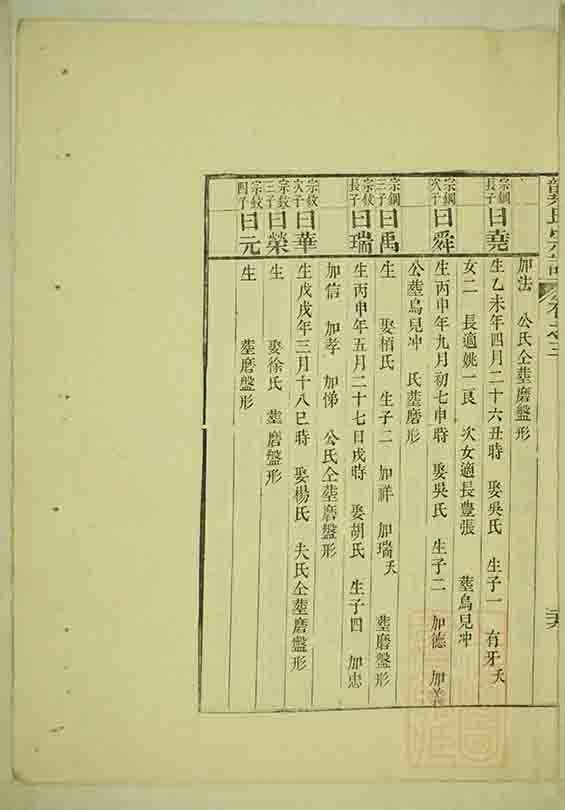 加法　公氏仝塟磨盤形
宗綱長子曰堯
生乙未年四月二十六丑時　娶吳氏　生子一　有牙夭
女二　長適姚一良　次女適長豊張　塟鳥兒冲
宗綱次子曰舜
生丙申年九月初七申時　娶吳氏　生子二　加德　加
公塟鳥兒冲　氏塟磨形
宗綱三子曰禹
生　娶栢氏　生子二　加祥　加瑞夭　塟磨盤形
宗敘長子曰瑞
生丙申年五月二十七日戌時　娶胡氏　生子四　加忠
加信　加孝　加悌　公氏仝塟磨盤形
宗敘次子曰華
生戊戌年三月十八巳時　娶楊氏　夫氏仝塟磨盤形
宗敘三子曰榮
生　娶徐氏　塟磨盤形
宗敘四子曰元
生　塟磨盤形